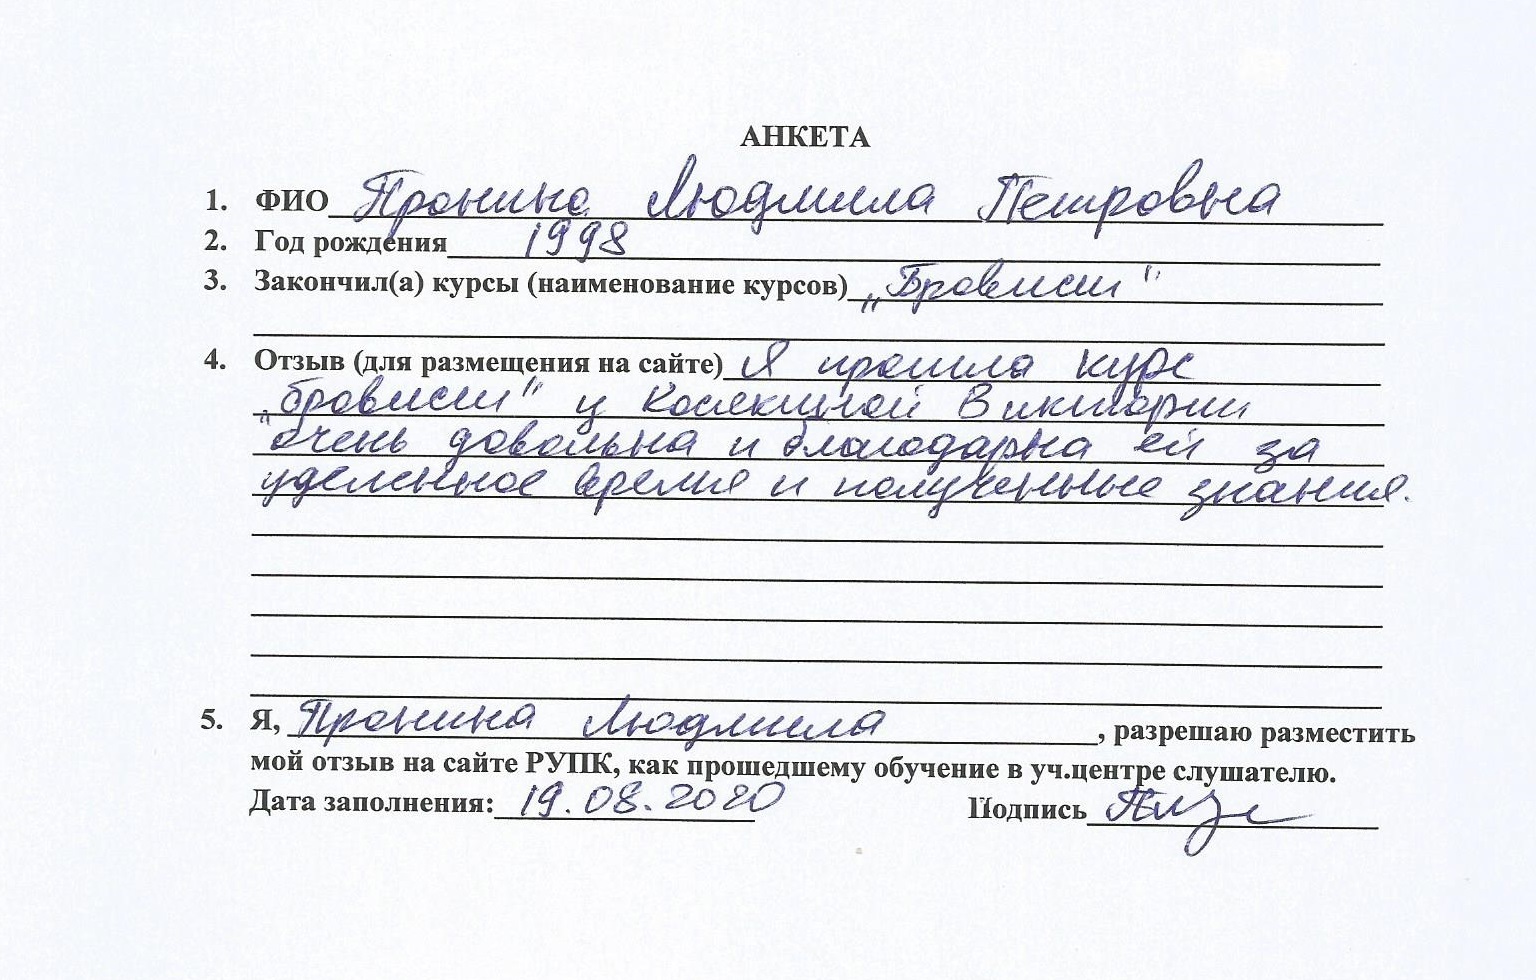 АНКЕТА
1. ФИО Пронина Людмила Петровна
2. Год рождения 1998
3. Закончил(а) курсы (наименование курсов) „Бровисты"
4. Отзыв (для размещения на сайте) Я прошла курс
„бровисты" у Косякиной Виктории
очень довольна и благодарна ей за
уделенное время и полученные знания.
5. Я, Пронина Людмила, разрешаю разместить
мой отзыв на сайте РУПК, как прошедшему обучение в уч.центре слушателю.
Дата заполнения: 19.08.2020 Подпись